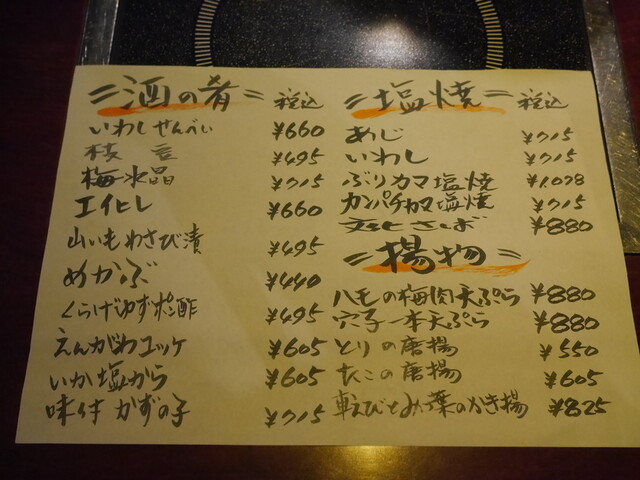 =酒の肴= 税込
いわしせんべい ¥660
枝豆 ¥495
梅水晶 ¥715
エイヒレ ¥660
山いもわさび漬 ¥495
めかぶ ¥440
くらげゆずポン酢 ¥495
えんがわユッケ ¥605
いか塩から ¥605
味付かずの子 ¥715
=塩焼= 税込
あじ ¥715
いわし ¥715
ぶりカマ塩焼 ¥1.078
カンパチカマ塩焼 ¥715
文化さば ¥880
=揚物=
ハモの梅肉天ぷら ¥880
穴子一本天ぷら ¥880
とりの唐揚 ¥550
たこの唐揚 ¥605
葉のかき揚 ¥825